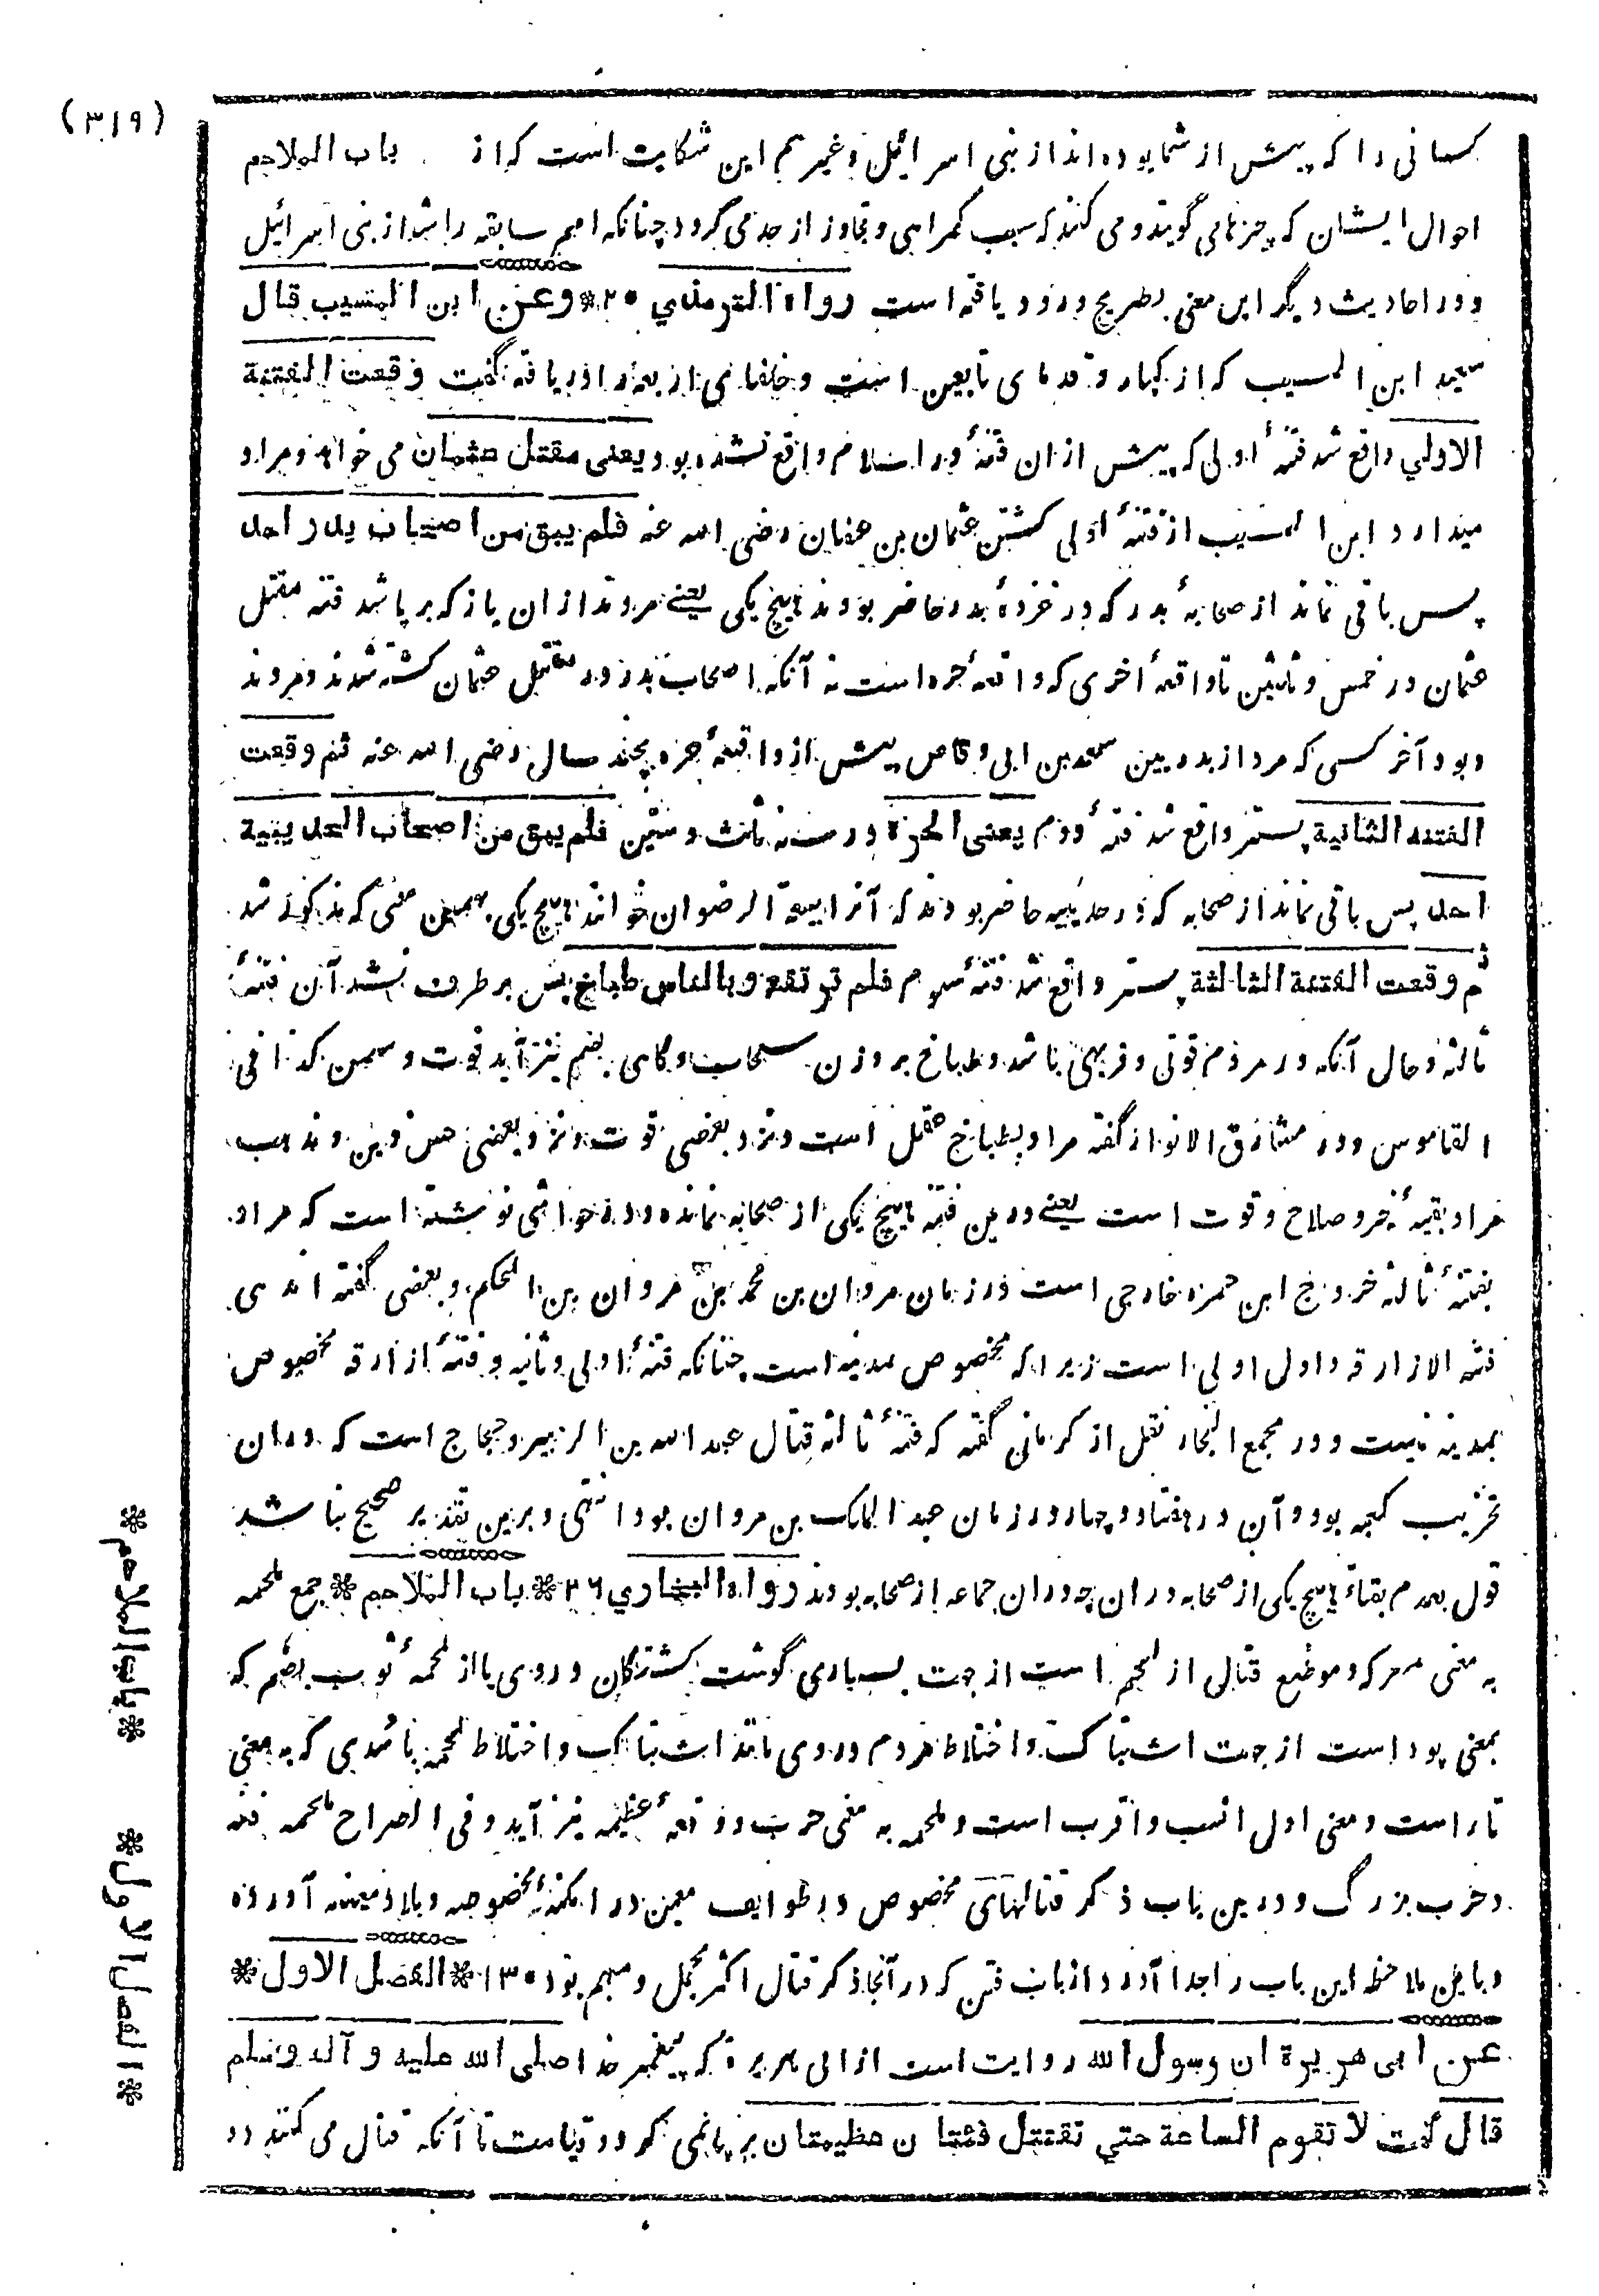 (٣١٩)
کسانی را که پیش از شما بوده اند از بنی اسرائیل و غیرهم این شکایت است که از باب الملاحم
احوال ایشان که چیزهایی گویند و می کنند که سبب گمراهی و تجاوز از حد می گردد چنانکه امم سابقه را شد از بنی اسرائیل
و در احادیث دیگر این معنی بطریح ورود یافته است رواه الترمذي ٢٥ * وعن ابن المسیب قال
سعید ابن المسیب که از کبار و قدمای تابعین است و خلفای اربعه را دریافته گفت وقعت الفتنة
الاولي واقع شد فتنهٔ اولی که پیش از ان فتنهٔ در اسلام واقع نشده بود یعنی مقتل عثمان می خواهد و مراد
میدارد ابن المسیب از فتنهٔ اولی کشتن عثمان بن عفان رضی الله عنه فلم یبق من اصحاب بدر احد
پس باقی نماند از صحابهٔ بدر که در غزوهٔ بدر حاضر بودند هیچ یکی یعنے مردند از ان باز که برپا شد فتنه مقتل
عثمان در خمس و ثلثین تا واقعهٔ اخری که واقعهٔ حره است نه آنکه اصحاب بدر در مقتل عثمان کشته شدند و مردند
و بود آخر کسی که مرد از بدریین سعد بن ابی وقاص پیش از واقعهٔ حره بچند سال رضی الله عنه ثم وقعت
الفتنة الثانیة پستر واقع شد فتنهٔ دوم یعنی الحرة در سنه ثلث و ستین فلم یبق من اصحاب الحدیبیة
احد پس باقی نماند از صحابه که در حدیبیه حاضر بودند که آنرا بیعة الرضوان خوانند هیچ یکی بهمین معنی که مذکور شد
ثم وقعت الفتنة الثالثة پستر واقع شد فتنهٔ سوم فلم ترتفع و بالناس طباخ پس بر طرف نشد آن فتنهٔ
ثالثه و حال آنکه در مردم قوتی و فربهی باشد و طباخ بر وزن سحاب و گاهی بضم نیز آید قوت و سمن کذا فی
القاموس و در مشارق الانوار گفته مراد بطباخ عقل است و نزد بعضی قوت و نزد بعضی حسن دین و مذهب
مراد بقیهٔ خیر و صلاح و قوت است یعنے درین فتنه هیچ یکی از صحابه نمانده و در حواشی نوشته است که مراد
بفتنهٔ ثالثه خروج ابن حمزه خارجی است در زمان مروان بن محمد بن مروان بن الحکم و بعضی گفته اند ی
فتنه الازارقه و اول اولی است زیرا که مخصوص بمدینه است چنانکه فتنهٔ اولی و ثانیه و فتنهٔ ازارقه مخصوص
بمدینه نیست و در مجمع البحار نقل از کرمانی گفته که فتنهٔ ثالثه قتال عبد الله بن الزبیر و حجاج است که دران
تخریب کعبه بود و آن در هفتاد و چهار در زمان عبد الملک بن مروان بود انتهی و برین تقدیر صحیح نباشد
قول بعدم بقاء هیچ یکی از صحابه دران چه دران جماعه از صحابه بودند رواه البخاري ٢٦ * باب الملاحم * جمع ملحمه
به معنی معرکه و موضع قتال از لحم است از جهت بسیاری گوشت کشتگان و روی یا از لحمهٔ ثوب بضم که
بمعنی پود است از جهت اشتباک و اختلاط مردم در وی مانند اشتباک و اختلاط لحمه با سدی که به معنی
تار است و معنی اول انسب و اقرب است و ملحمه به معنی حرب و وقعهٔ عظیمه نیز آید و فی الصراح ملحمه فتنه
و حرب بزرگ و درین باب ذکر قتالهای مخصوص در طوایف معین در امکنهٔ مخصوصه و بلاد معینه آورده
و باین ملاحظه این باب را جدا آورد از باب فتن که در آنجا ذکر قتال اکثر مجمل و مبهم بود ١٣٥ * الفصل الاول *
عن ابی هریرة ان رسول الله روایت است از ابی هریره که پیغمبر خدا صلی الله علیه و آله وسلم
قال گفت لا تقوم الساعة حتي تقتتل فئتان عظیمتان برپا نمی گردد قیامت تا آنکه قتال می کنند دو
* باب الملاحم *
* الفصل الاول *